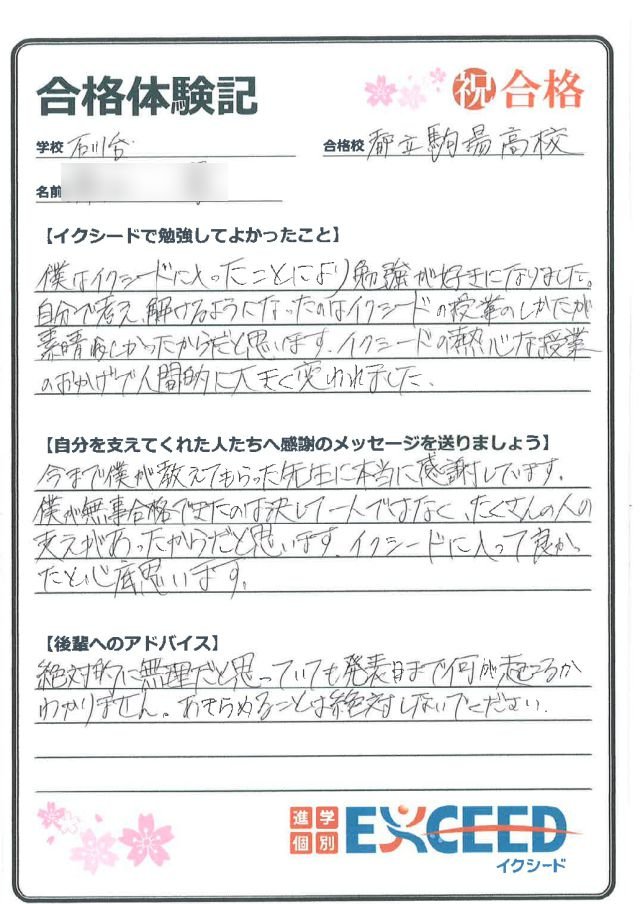 合格体験記
祝 合格
学校 石川台
合格校 都立駒場高校
名前
【イクシードで勉強してよかったこと】
僕はイクシードに入ったことにより勉強が好きになりました。
自分で考え、解けるようになったのはイクシードの授業のしかたが
素晴らしかったからだと思います。イクシードの熱心な授業
のおかげで人間的に大きく変われました。
【自分を支えてくれた人たちへ感謝のメッセージを送りましょう】
今まで僕が教えてもらった先生に本当に感謝しています。
僕が無事合格できたのは決して一人ではなく、たくさんの人の
支えがあったからだと思います。イクシードに入って良かっ
たと心底思います。
【後輩へのアドバイス】
絶対的に無理だと思っていても発表日まで何が起こるか
わかりません。あきらめることは絶対しないでください。
進学
個別
EXCEED
イクシード